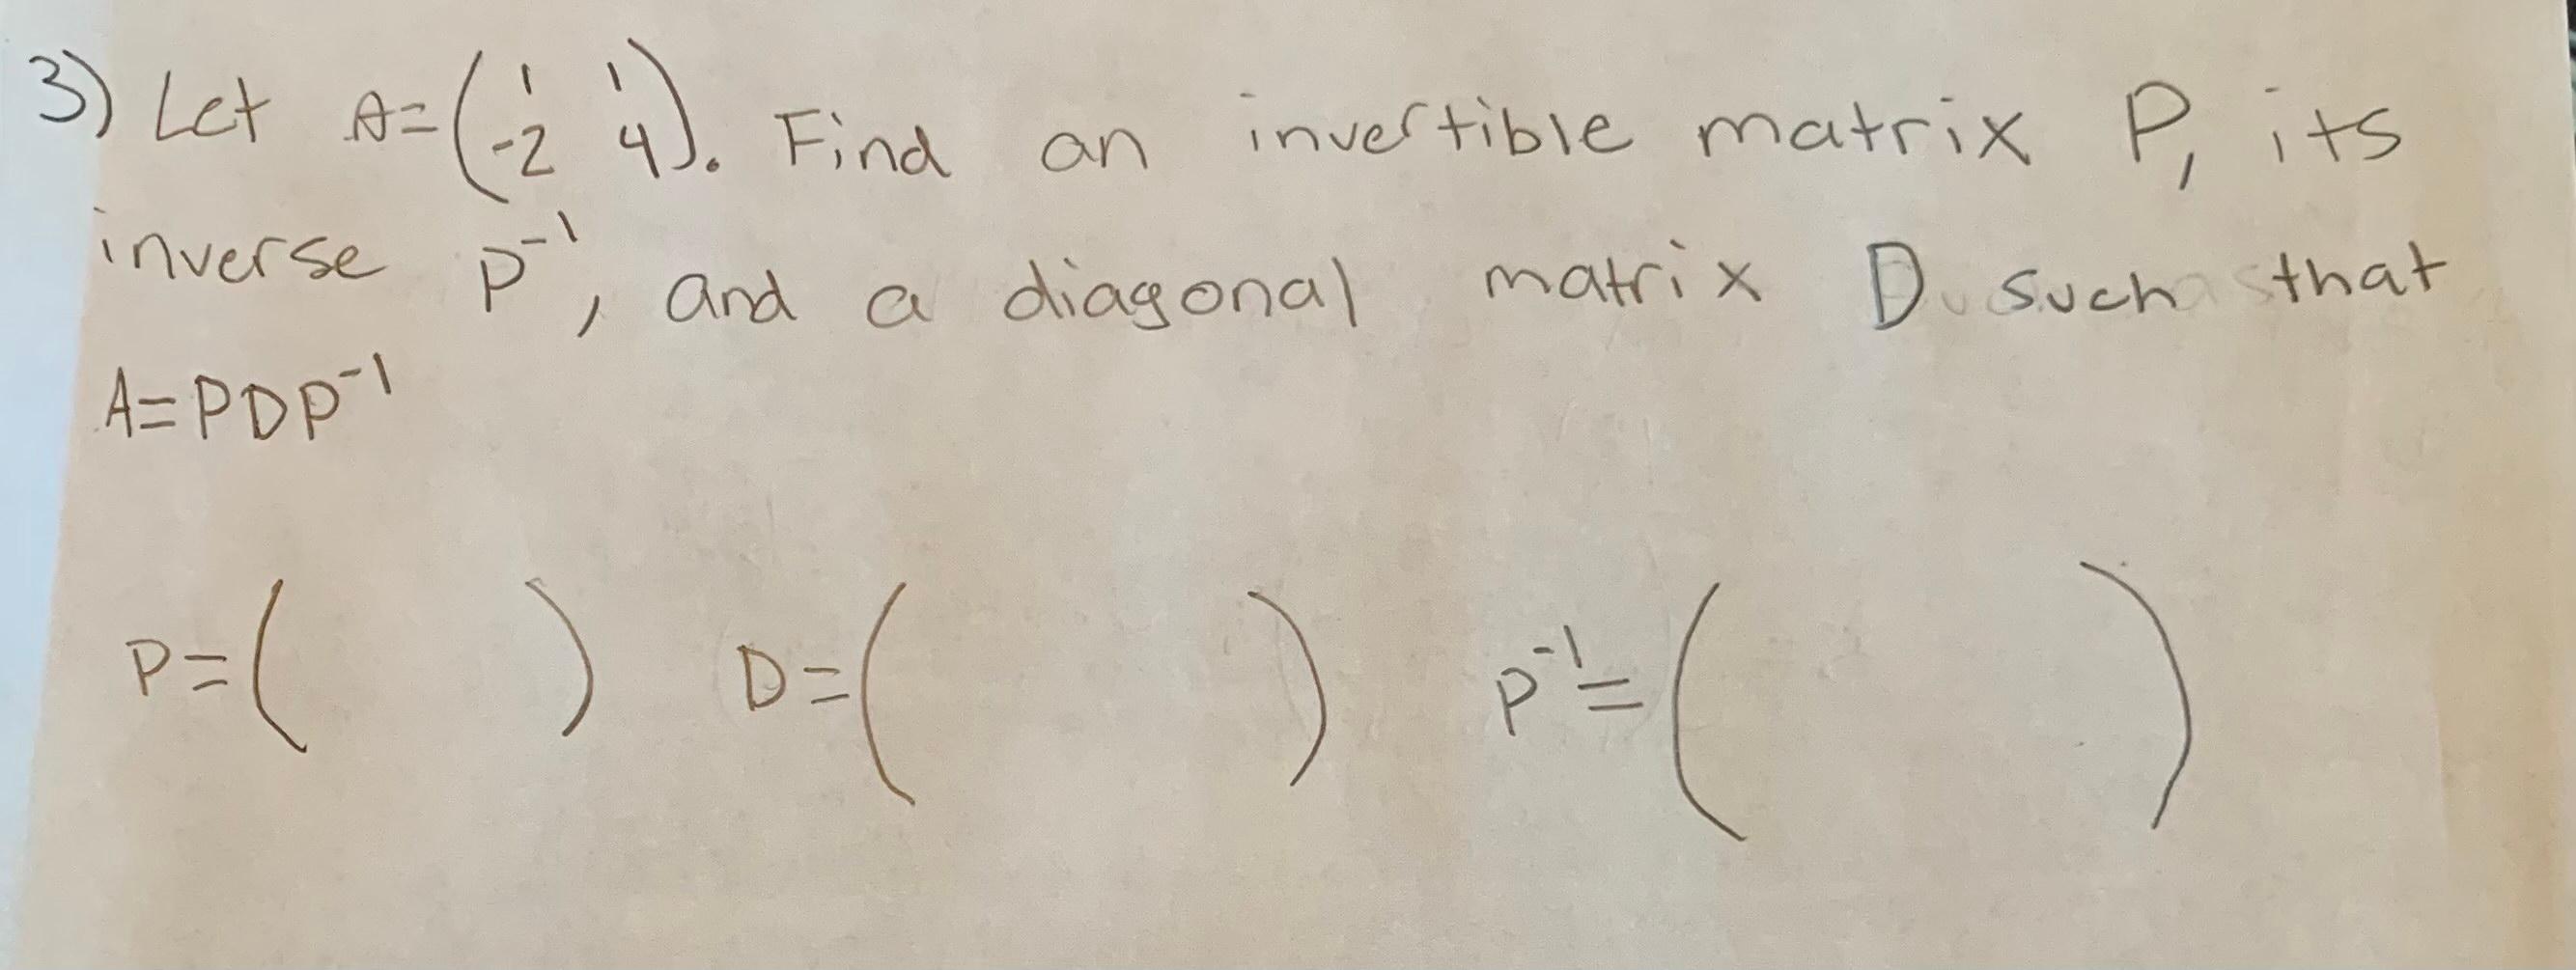 3) Let A=(1 1
-2 4). Find an invertible matrix P, its
inverse P⁻¹, and a diagonal matrix D such that
A=PDP⁻¹
P=( ) D=( ) P⁻¹=( )